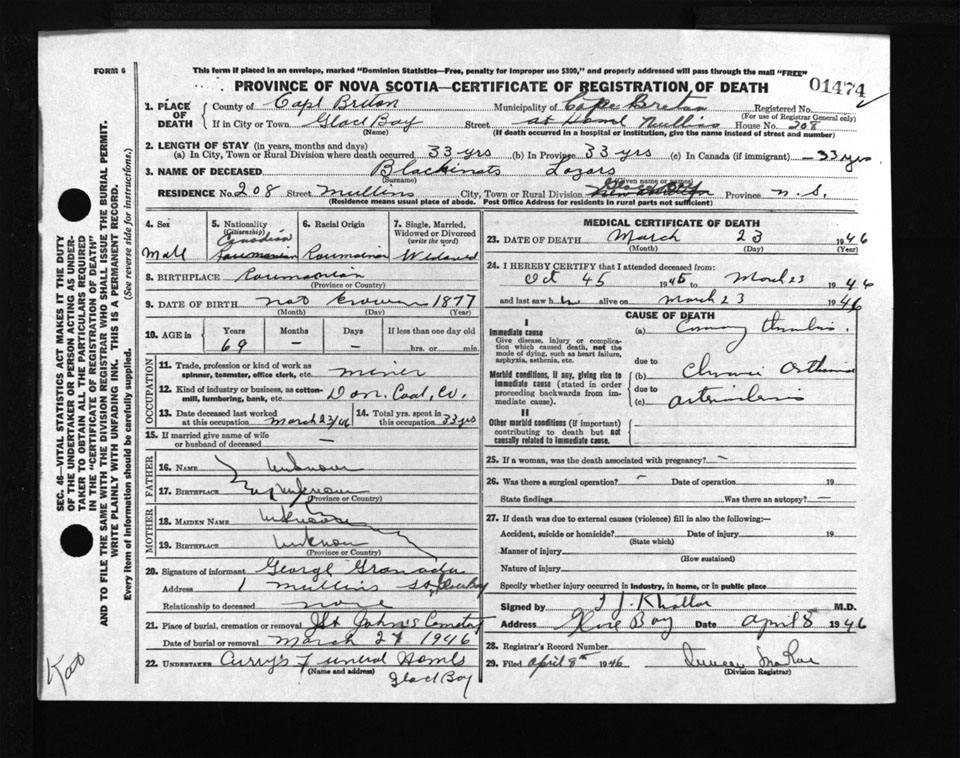 FORM 6
This form if placed in an envelope, marked "Dominion Statistics—Free, penalty for improper use $300," and properly addressed will pass through the mail "FREE"
PROVINCE OF NOVA SCOTIA—CERTIFICATE OF REGISTRATION OF DEATH
01474
1. PLACE OF DEATH
County of Cape Breton Municipality of Cape Breton Registered No.
(For use of Registrar General only)
If in City or Town Glace Bay Street at Home Mullins House No. 208
(Name) (If death occurred in a hospital or institution, give name instead of street and number)
2. LENGTH OF STAY (in years, months and days)
(a) In City, Town or Rural Division where death occurred 33 yrs (b) In Province 33 yrs (c) In Canada (if immigrant) – 33 yrs
3. NAME OF DECEASED Blackinats Lazars
(Surname) (Given name or names)
RESIDENCE No. 208 Street Mullins City, Town or Rural Division Province N. S.
(Residence means usual place of abode. Post Office Address for residents in rural parts not sufficient)
4. Sex
Male
5. Nationality (Citizenship)
Canadian
6. Racial Origin
7. Single, Married, Widowed or Divorced (write the word)
Widowed
8. BIRTHPLACE
(Province or Country)
9. DATE OF BIRTH not known 1877
(Month) (Day) (Year)
10. AGE in
Years Months Days If less than one day old
69 – – hrs. or min.
OCCUPATION
11. Trade, profession or kind of work as spinner, teamster, office clerk, etc. miner
12. Kind of industry or business, as cotton-mill, lumbering, bank, etc. Dom. Coal, Co.
13. Date deceased last worked at this occupation
14. Total yrs. spent in this occupation 33 yrs
15. If married give name of wife or husband of deceased –
FATHER
16. NAME Unknown
17. BIRTHPLACE Unknown
(Province or Country)
MOTHER
18. MAIDEN NAME Unknown
19. BIRTHPLACE Unknown
(Province or Country)
20. Signature of informant George
Address 1 Mullins St, Glace Bay
Relationship to deceased none
21. Place of burial, cremation or removal St Johns Cemetery
Date of burial or removal March 1946
22. UNDERTAKER Currys Funeral Homes
(Name and address)
Glace Bay
MEDICAL CERTIFICATE OF DEATH
23. DATE OF DEATH March 23 1946
(Month) (Day)
24. I HEREBY CERTIFY that I attended deceased from:
Oct 45 1945 to March 23 1946
and last saw h alive on March 23 1946
CAUSE OF DEATH
I
Immediate cause
Give disease, injury or complication which caused death, not the mode of dying, such as heart failure, asphyxia, asthenia, etc.
(a)
due to
Morbid conditions, if any, giving rise to immediate cause (stated in order proceeding backwards from immediate cause).
(b) Chronic
due to
(c)
II
Other morbid conditions (if important) contributing to death but not causally related to immediate cause.
25. If a woman, was the death associated with pregnancy? –
26. Was there a surgical operation? – Date of operation 19
State findings Was there an autopsy? –
27. If death was due to external causes (violence) fill in also the following:—
Accident, suicide or homicide? Date of injury 19
(State which)
Manner of injury
(How sustained)
Nature of injury
Specify whether injury occurred in industry, in home, or in public place
Signed by M.D.
Address Glace Bay Date April 8 1946
28. Registrar's Record Number
29. Filed April 8th 1946
(Division Registrar)
SEC. 46—VITAL STATISTICS ACT MAKES IT THE DUTY
OF THE UNDERTAKER OR PERSON ACTING AS UNDER-
TAKER TO OBTAIN ALL THE PARTICULARS REQUIRED
IN THE "CERTIFICATE OF REGISTRATION OF DEATH"
AND TO FILE THE SAME WITH THE DIVISION REGISTRAR WHO SHALL ISSUE THE BURIAL PERMIT.
WRITE PLAINLY WITH UNFADING INK. THIS IS A PERMANENT RECORD.
Every item of information should be carefully supplied. (See reverse side for instructions.)